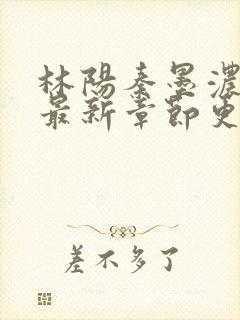 林陽秦墨濃
最新章節更
差不多了